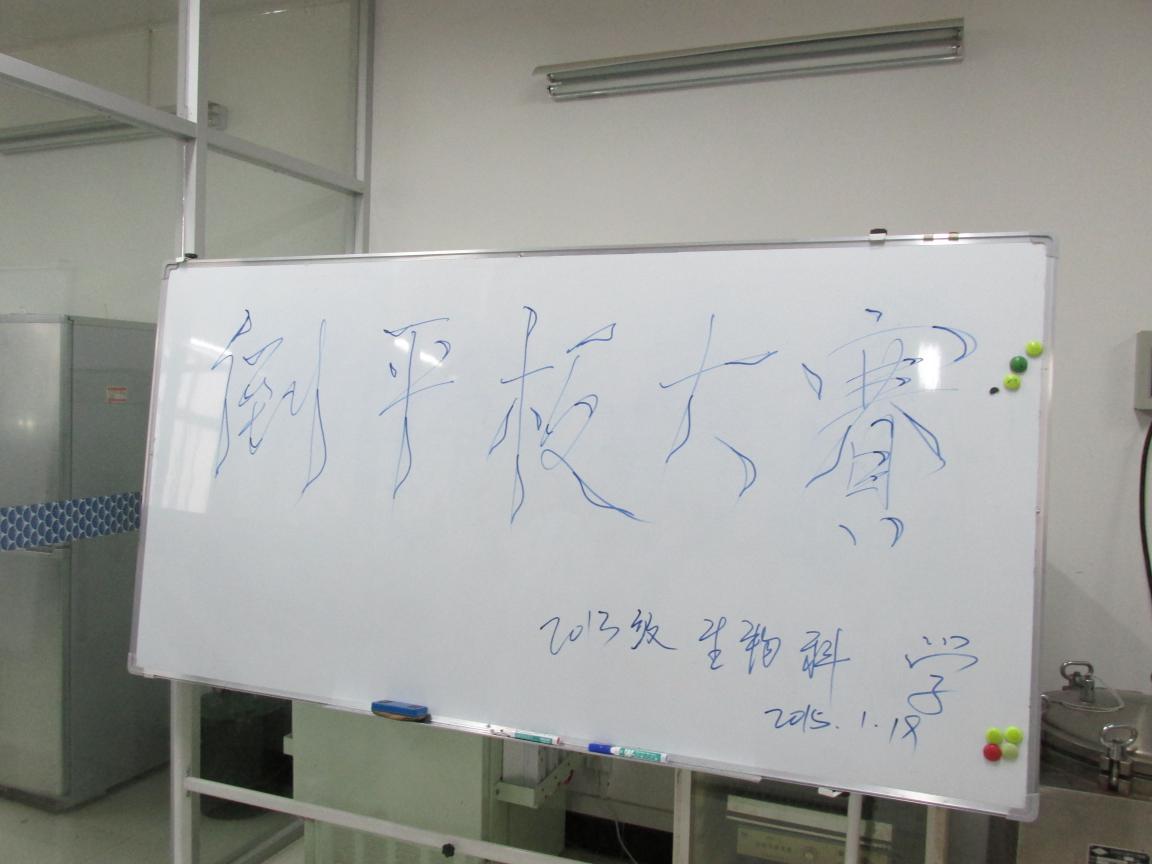 倒平板大赛
2013级 生物科学
2015.1.18